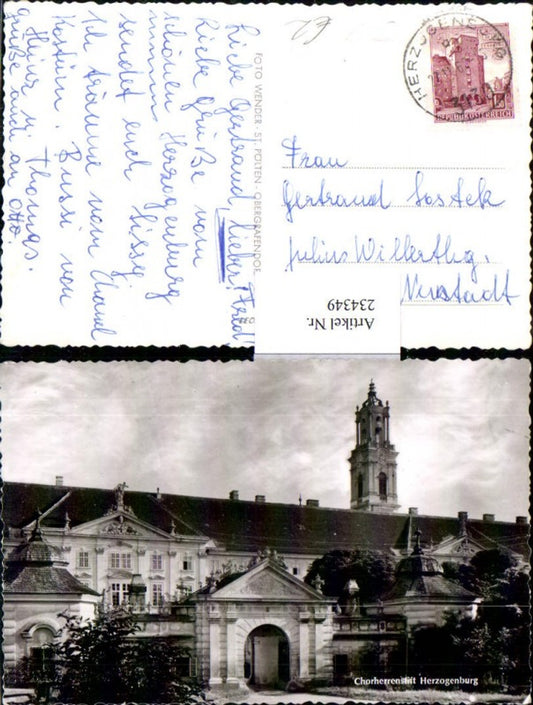 Liebe Gertraud, lieber Fred!
Liebe Grüße vom
schönen Herzogenburg
sendet euch Sissy
Ich träume vom
Bussi von
Heinz u. Thomas.
Grüße auch an Otto.
FOTO WENDER - ST. PÖLTEN - OBERGRAFENDORF
HERZOGENBURG
REPUBLIK ÖSTERREICH
Frau
Gertraud Sostek
Julius Willerthg.
Neustadt
Artikel Nr.
234349
Chorherrenstift Herzogenburg